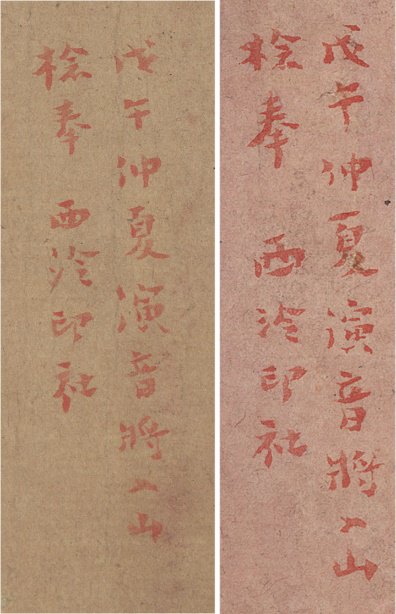 戊午仲夏演音將入山
檢奉 西泠印社
戊午仲夏演音將入山
檢奉 西泠印社